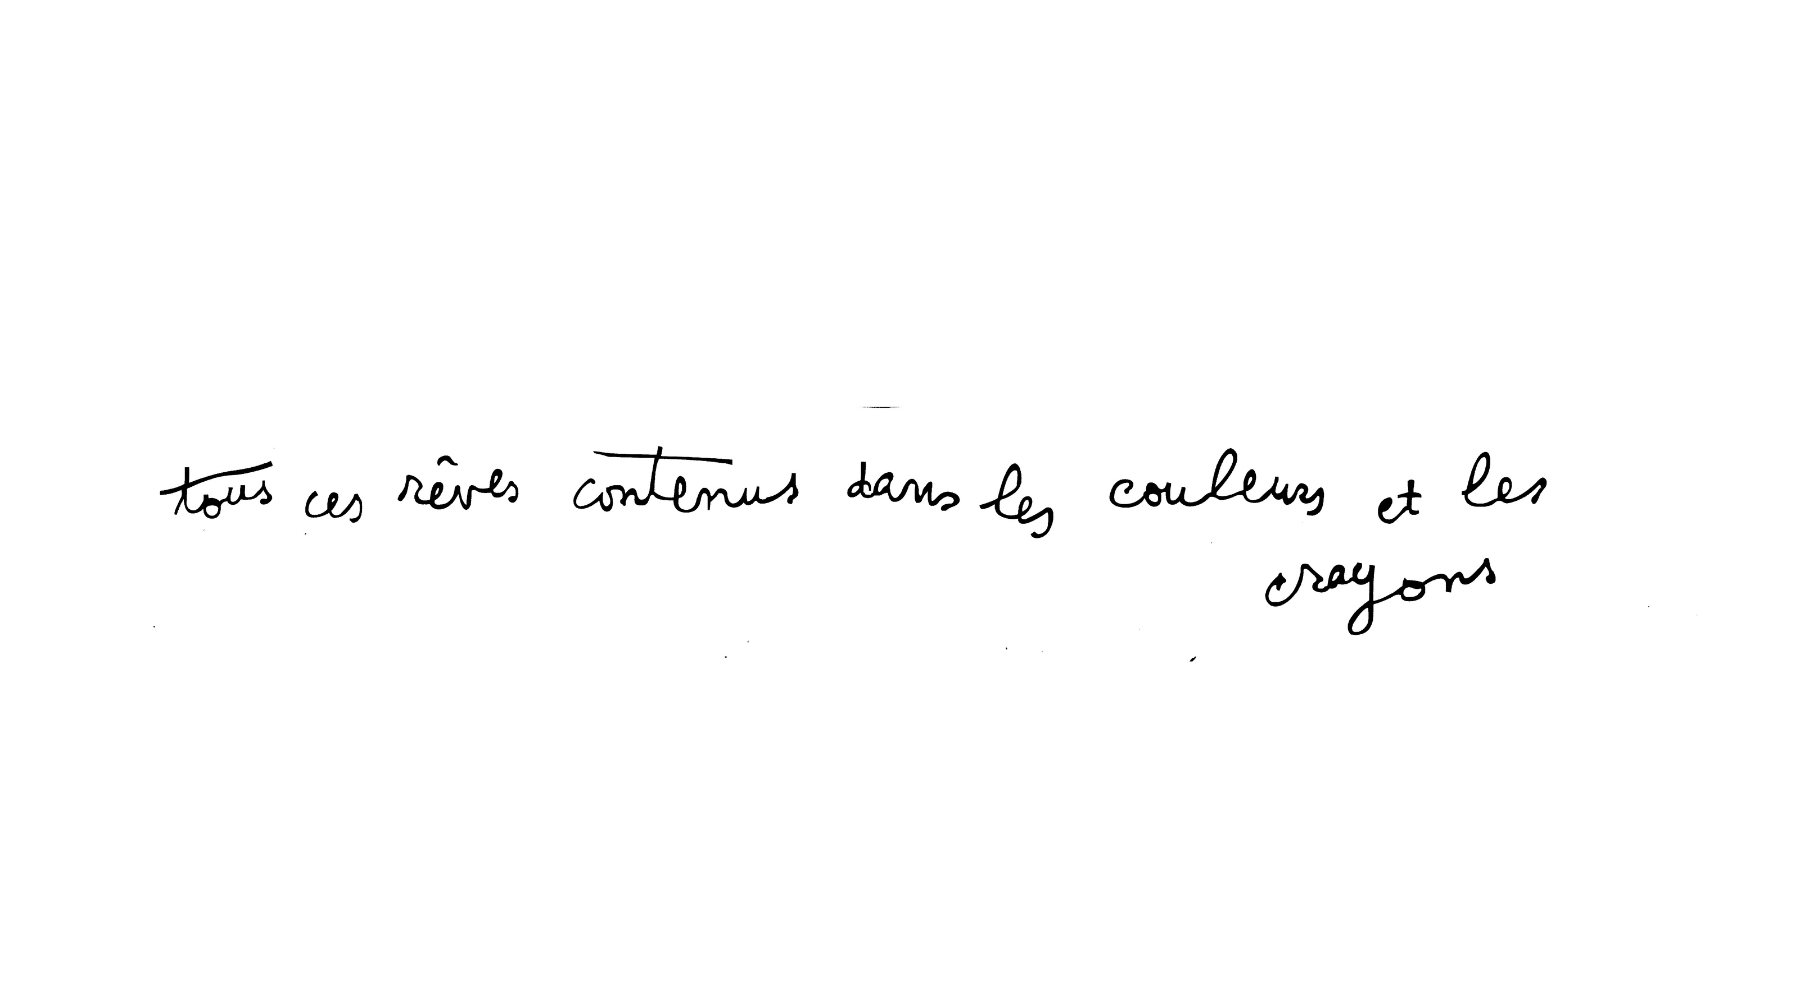 tous ces rêves contenus dans les couleurs et les
crayons